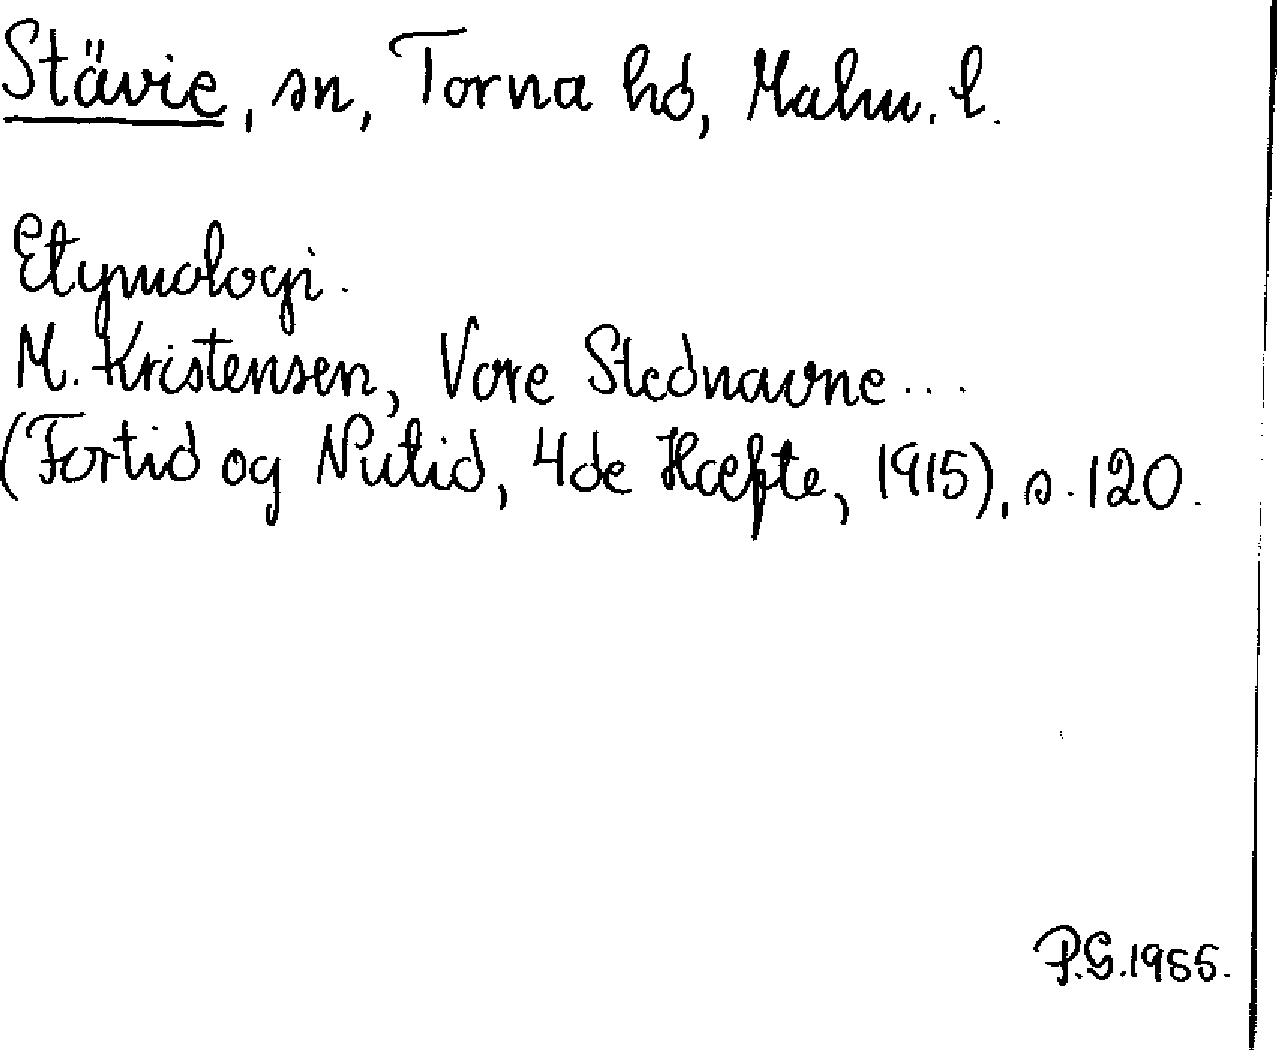 Stävie, sn, Torna hd, Malm. l.
Etymologi.
M. Kristensen, Vore Stednavne...
(Fortid og Nutid, 4de Hæfte, 1915), s. 120.
P.G. 1955.